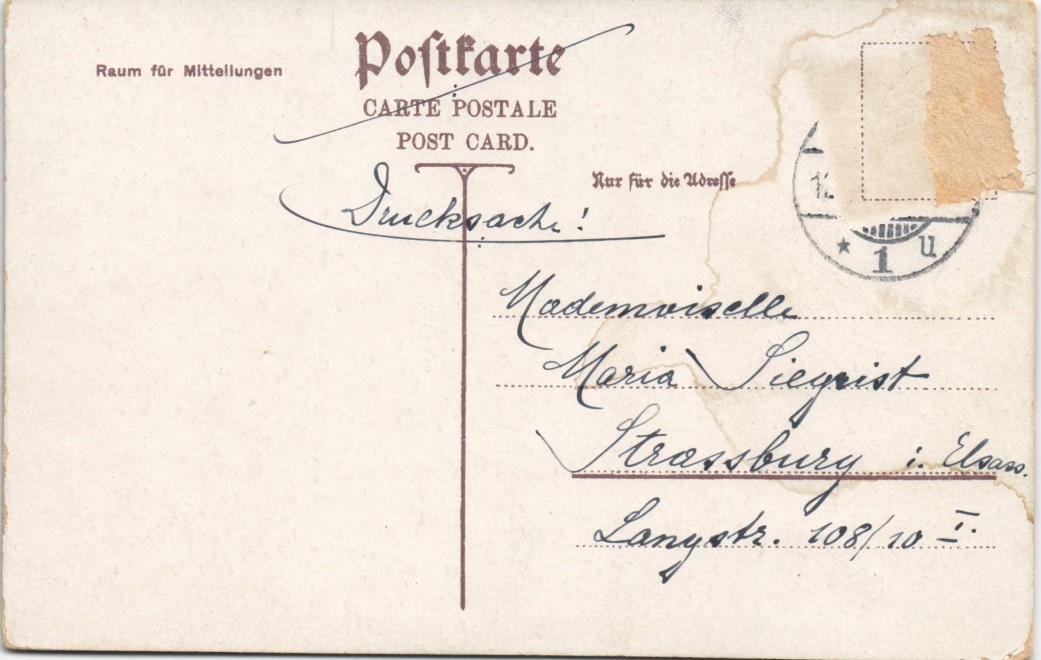 Raum für Mitteilungen
Postkarte
CARTE POSTALE
POST CARD.
Nur für die Adresse
Drucksache!
1 u
Mademoiselle
Maria Siegrist
Strassburg i. Elsass.
Langstr. 108/10 I.